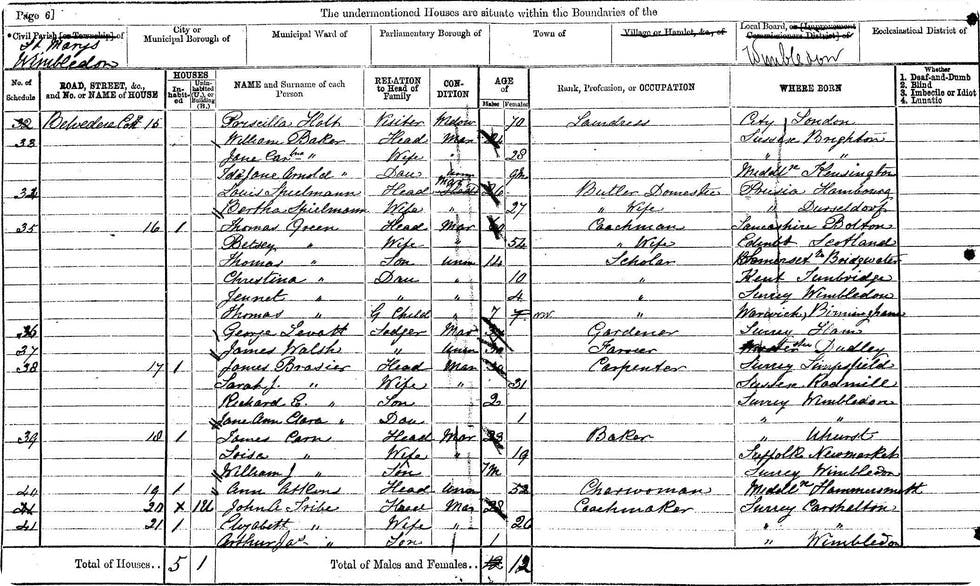 Page 6] The undermentioned Houses are situate within the Boundaries of the
*Civil Parish [or Township] of City or Municipal Borough of Municipal Ward of Parliamentary Borough of Town of Village or Hamlet, &c., of Local Board, or [Improvement Commissioners District] of Ecclesiastical District of
St. Marys Wimbledon Wimbledon
No. of Schedule ROAD, STREET, &c., and No. or NAME of HOUSE HOUSES Inhabited Uninhabited (U.), or Building (B.) NAME and Surname of each Person RELATION to Head of Family CONDITION AGE of Males Females Rank, Profession, or OCCUPATION WHERE BORN Whether 1. Deaf-and-Dumb 2. Blind 3. Imbecile or Idiot 4. Lunatic
32 Belvedere Cott 15 Priscilla Holt Visitor Widow 70 Laundress City London
33 William Baker Head Mar Sussex Brighton
Jane " Wife " 28 " "
Ida Jane Arnold " Dau 9m Middlx Kensington
34 Louis Spielmann Head Mar 26 Butler Domestic Prusia Hambourg
Bertha Spielmann Wife " 27 " Wife " Dusseldorf
35 16 1 Thomas Green Head Mar Coachman Lancashire Bolton
Betsey " Wife " 54 " Wife Scotland
Thomas " Son Unm 14 Scholar Somerset Bridgwater
Christina " Dau " 10 " Kent Tunbridge
Jennet " " " 4 Surrey Wimbledon
Thomas " G Child " 7 " Warwick, Birmingham
36 George Lodger Mar Gardener Surrey Ham
37 James Walsh " Unm 30 Farrier Dudley
38 17 1 James Brasier Head Mar Carpenter Surrey Limpsfield
Sarah J. " Wife " 21 Sussex Rodmill
Richard E. " Son 2 Surrey Wimbledon
Jane Ann Clara " Dau 1 " "
39 18 1 James Head Mar 23 Baker "
Loisa " Wife " 19 Suffolk Newmarket
William J " Son 7m Surrey Wimbledon
40 19 1 Ann Atkins Head Unm 52 Charwoman Middlx Hammersmith
20 John A Tribe Head Mar 28 Coachmaker Surrey Carshalton
41 21 1 Elizabeth " Wife " 20 " "
Arthur Jas " Son 1 " Wimbledon
Total of Houses.. 5 1 Total of Males and Females.. 12